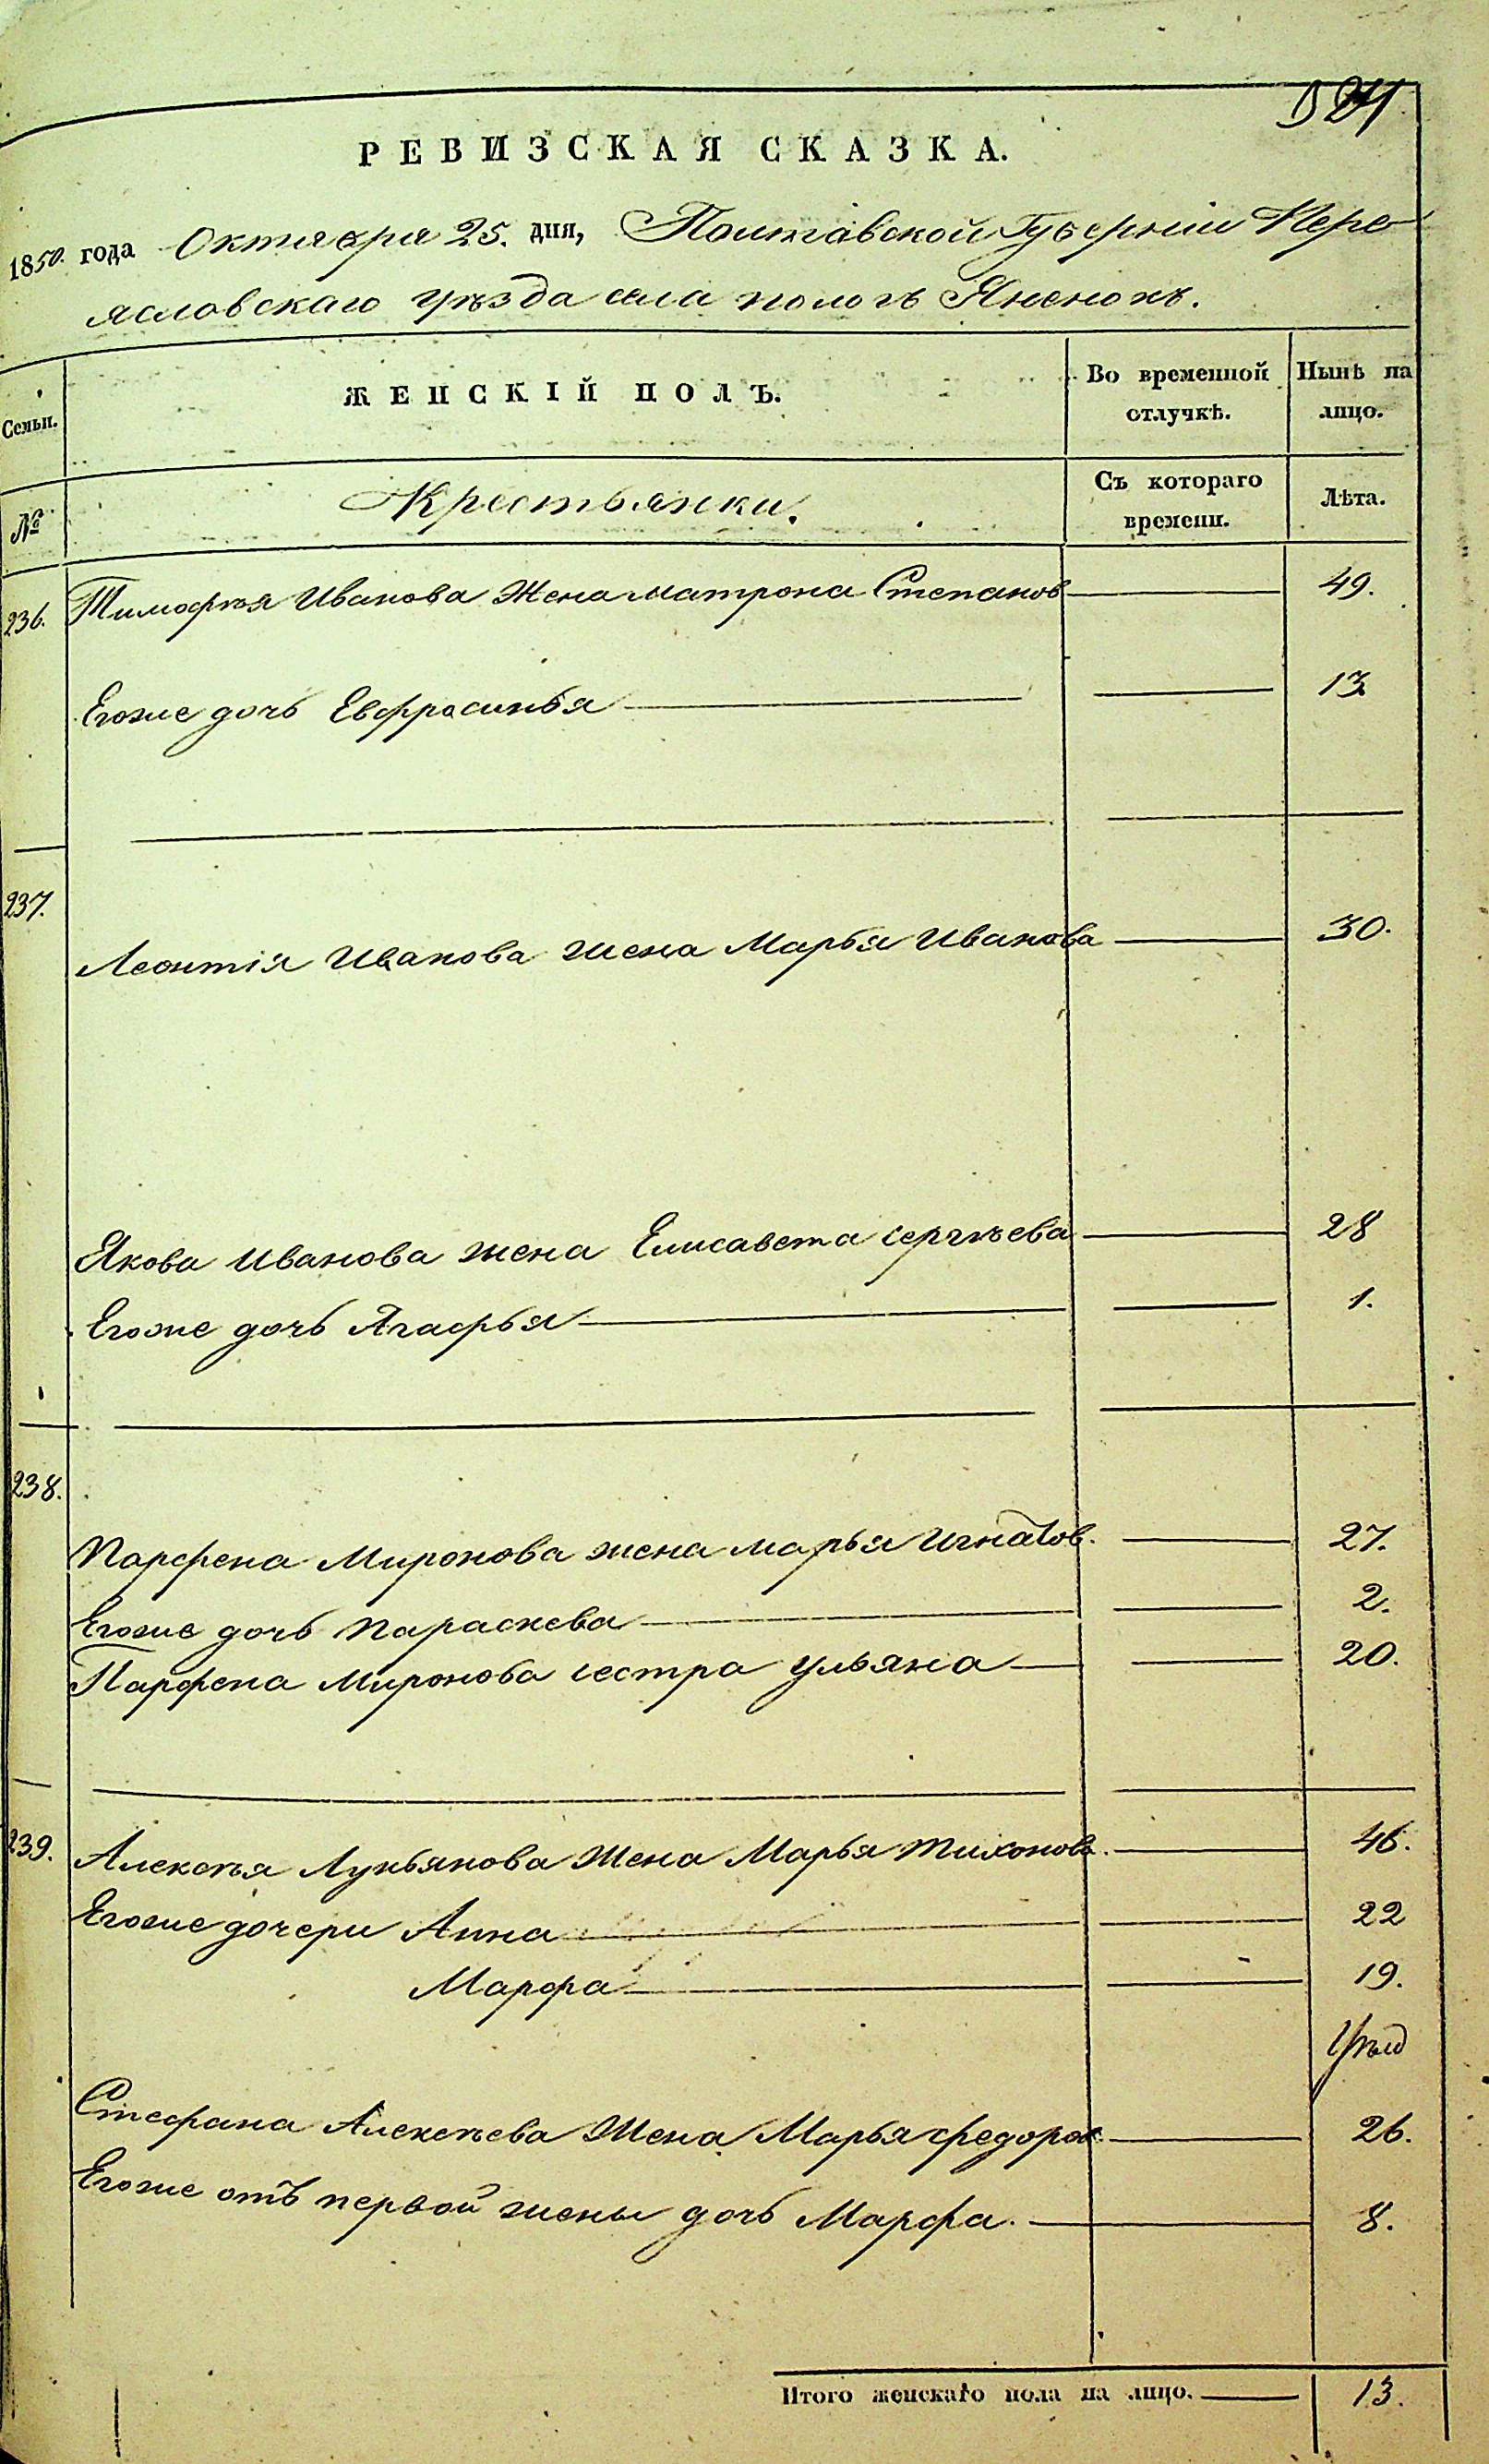 РЕВИЗСКАЯ СКАЗКА.
1850. года Октября 25. дня, Полтавской Губерніи Пере
ясловскаго уѣзда села пологъ Яненокъ.
Семьи. ЖЕНСКІЙ ПОЛЪ. Во временной отлучкѣ. Нынѣ на лицо.
№ Крестьянки. Съ котораго времени. Лѣта.
236. Тимофѣя Иванова Жена матрона Степанов 49.
Егоже дочь Евфросинья 13
237.
Леонтія Иванова жена Марья Иванова 30.
Якова Иванова жена Елисавета сергѣева 28
Егоже дочь Агафья 1.
238.
Парфена Миронова жена марья Игнатов. 27.
Егоже дочь Параскева 2.
Парфена Миронова сестра ульяна 20.
239. Алексѣя Лукьянова Жена Марья Тихонова. 46.
Егоже дочери Анна 22
Марфа 19.
Стефана Алексѣева Жена Марья федоров. 26.
Егоже отъ первой жены дочь Марфа. 8.
Итого женскаго пола на лицо. 13.